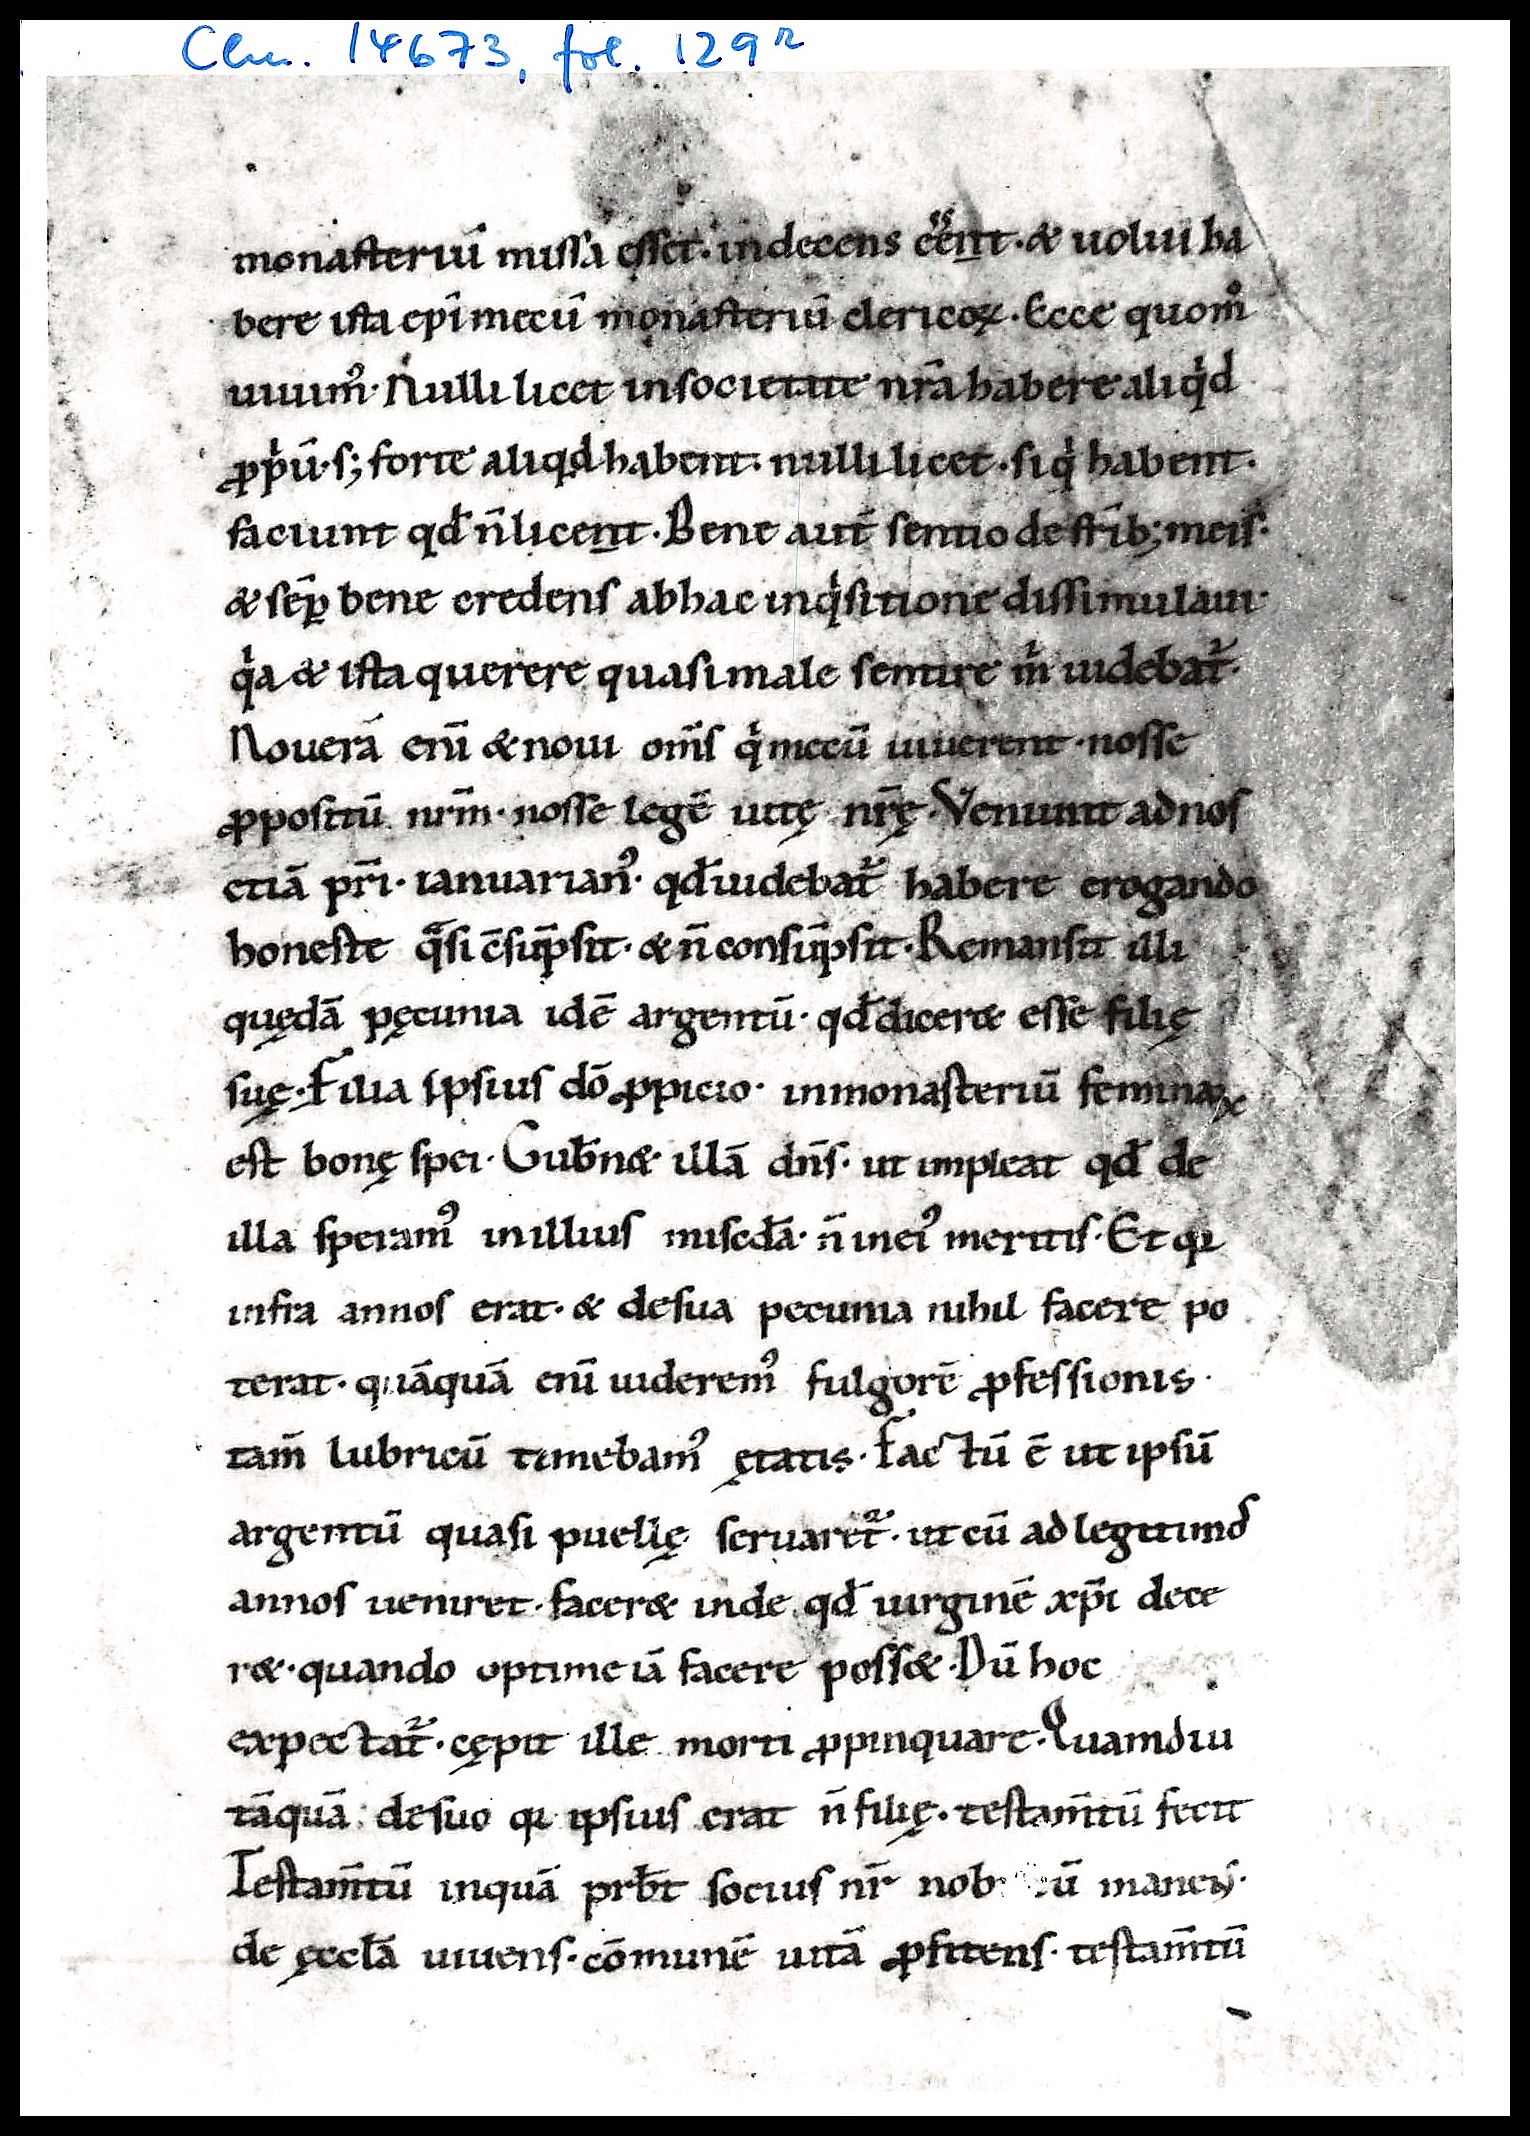 Clm. 14673, fol. 129r
monasteriū missa esset· indecens eēnt· & uolui ha
bere ista epī mecū monasteriū clericoꝝ· Ecce quom̊
uiuim᷒· Nulli licet insocietate nr̄a habere aliqͥd
ꝓpͥū· s; forte aliqd habent· nulli licet· siqͥ habent·
faciunt qđ n̄ licent· Bene aut̄ sentio de fr̄ib; meis·
& sēꝑ bene credens abhac inqͥsitione dissimulaui·
qͥa & ista querere quasi male sentire mͥ uidebat᷑·
Nouerā enī & noui om̄s qͥ mecū uiuerent· nosse
ꝓpositū nr̄m· nosse legē uitę nr̄ę· Venunt adnos
etiā pr̄i· ianuarian᷒· qđ uidebat᷑ habere erogando
honeste qᷓsi c̄sūpsit· & n̄ consūpsit· Remansit illi
quędā pęcunia idē argentū· qđ dicer& esse filię
suę· Filia ipsius dō ꝓpicio· inmonasteriū feminaꝝ
est bonę spei· Gub̄n& illā dn̄s· ut impleat qđ de
illa speram᷒ inillius misc̄dā· n̄ inei᷒ meritis· Et qꝛ
infra annos erat· & desua pecunia nihil facere po
terat· quāquā enī uiderem᷒ fulgorē ꝓfessionis·
tam̄ lubricū timebam᷒ ętatis· Factū ē ut ipsū
argentū quasi puellę seruaret᷑· ut cū ad legitimos
annos ueniret· facer& inde qđ uirginē xp̄i dece
r&· quando optime iā facere poss&· Dū hoc
expectat᷑· cępit ille morti ꝓpinquare· Quamdiu
tāquā de suo qꝛ ipsius erat n̄ filię· testam̄tū fecit
Testam̄tū inquā prb̄t socius nr̄ nob ū manens·
de ęccłā uiuens· cōmunē uitā ꝓfitens· testam̄tū